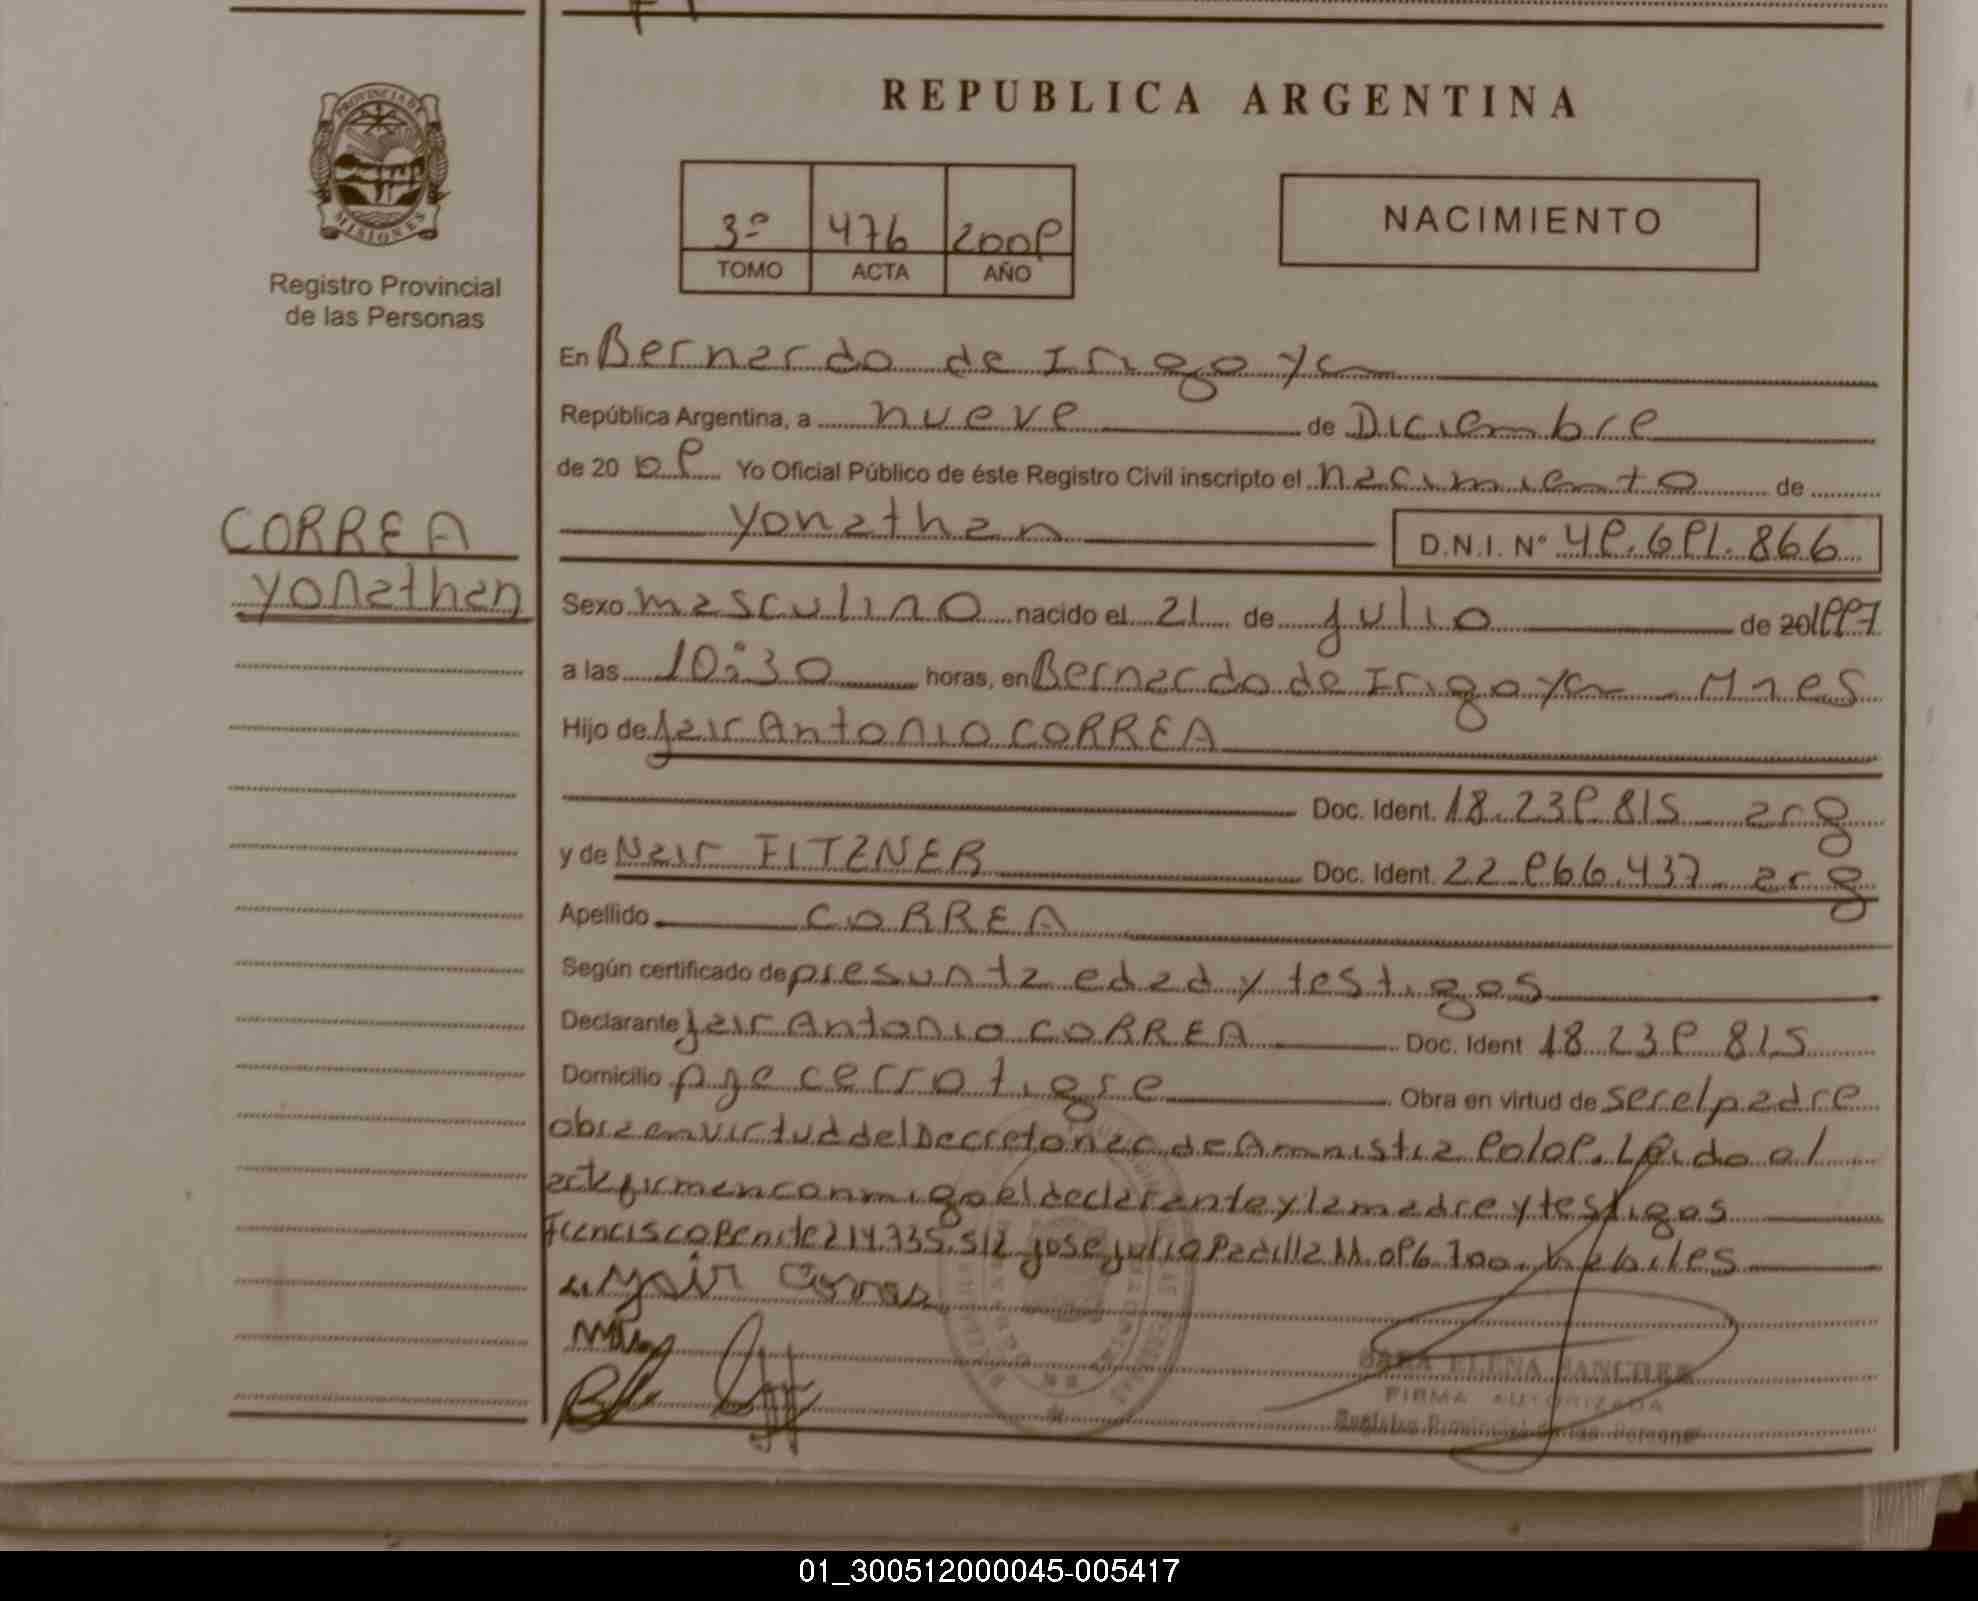 REPUBLICA ARGENTINA
PROVINCIA DE
MISIONES
Registro Provincial
de las Personas
3º 476 2009
TOMO ACTA AÑO
NACIMIENTO
En Bernardo de Irigoyen
República Argentina, a nueve de Diciembre
de 20 09 Yo Oficial Público de éste Registro Civil inscripto el nacimiento de
Yonathan D.N.I. Nº 49.691.866
CORREA
Yonathan
Sexo masculino nacido el 21 de julio de 20 1997
a las 10:30 horas, en Bernardo de Irigoyen - Mnes
Hijo de Jair Antonio CORREA
Doc. Ident. 18.239.815 arg
y de Nair FITZNER Doc. Ident. 22.966.437 arg
Apellido CORREA
Según certificado de presunta edad y testigos
Declarante Jair Antonio CORREA Doc. Ident 18.239.815
Domicilio pje cerro tigre Obra en virtud de ser el padre
obra en virtud del Decreto nac. de Amnistia 90/09. Leido el
acta firman conmigo el declarante y la madre y testigos
Francisco Benitez 14.735.512 Jose Julio Padilla 11.096.700. habiles
SARA ELENA SANCHEZ
FIRMA AUTORIZADA
Registro Provincial de las Personas
01_300512000045-005417